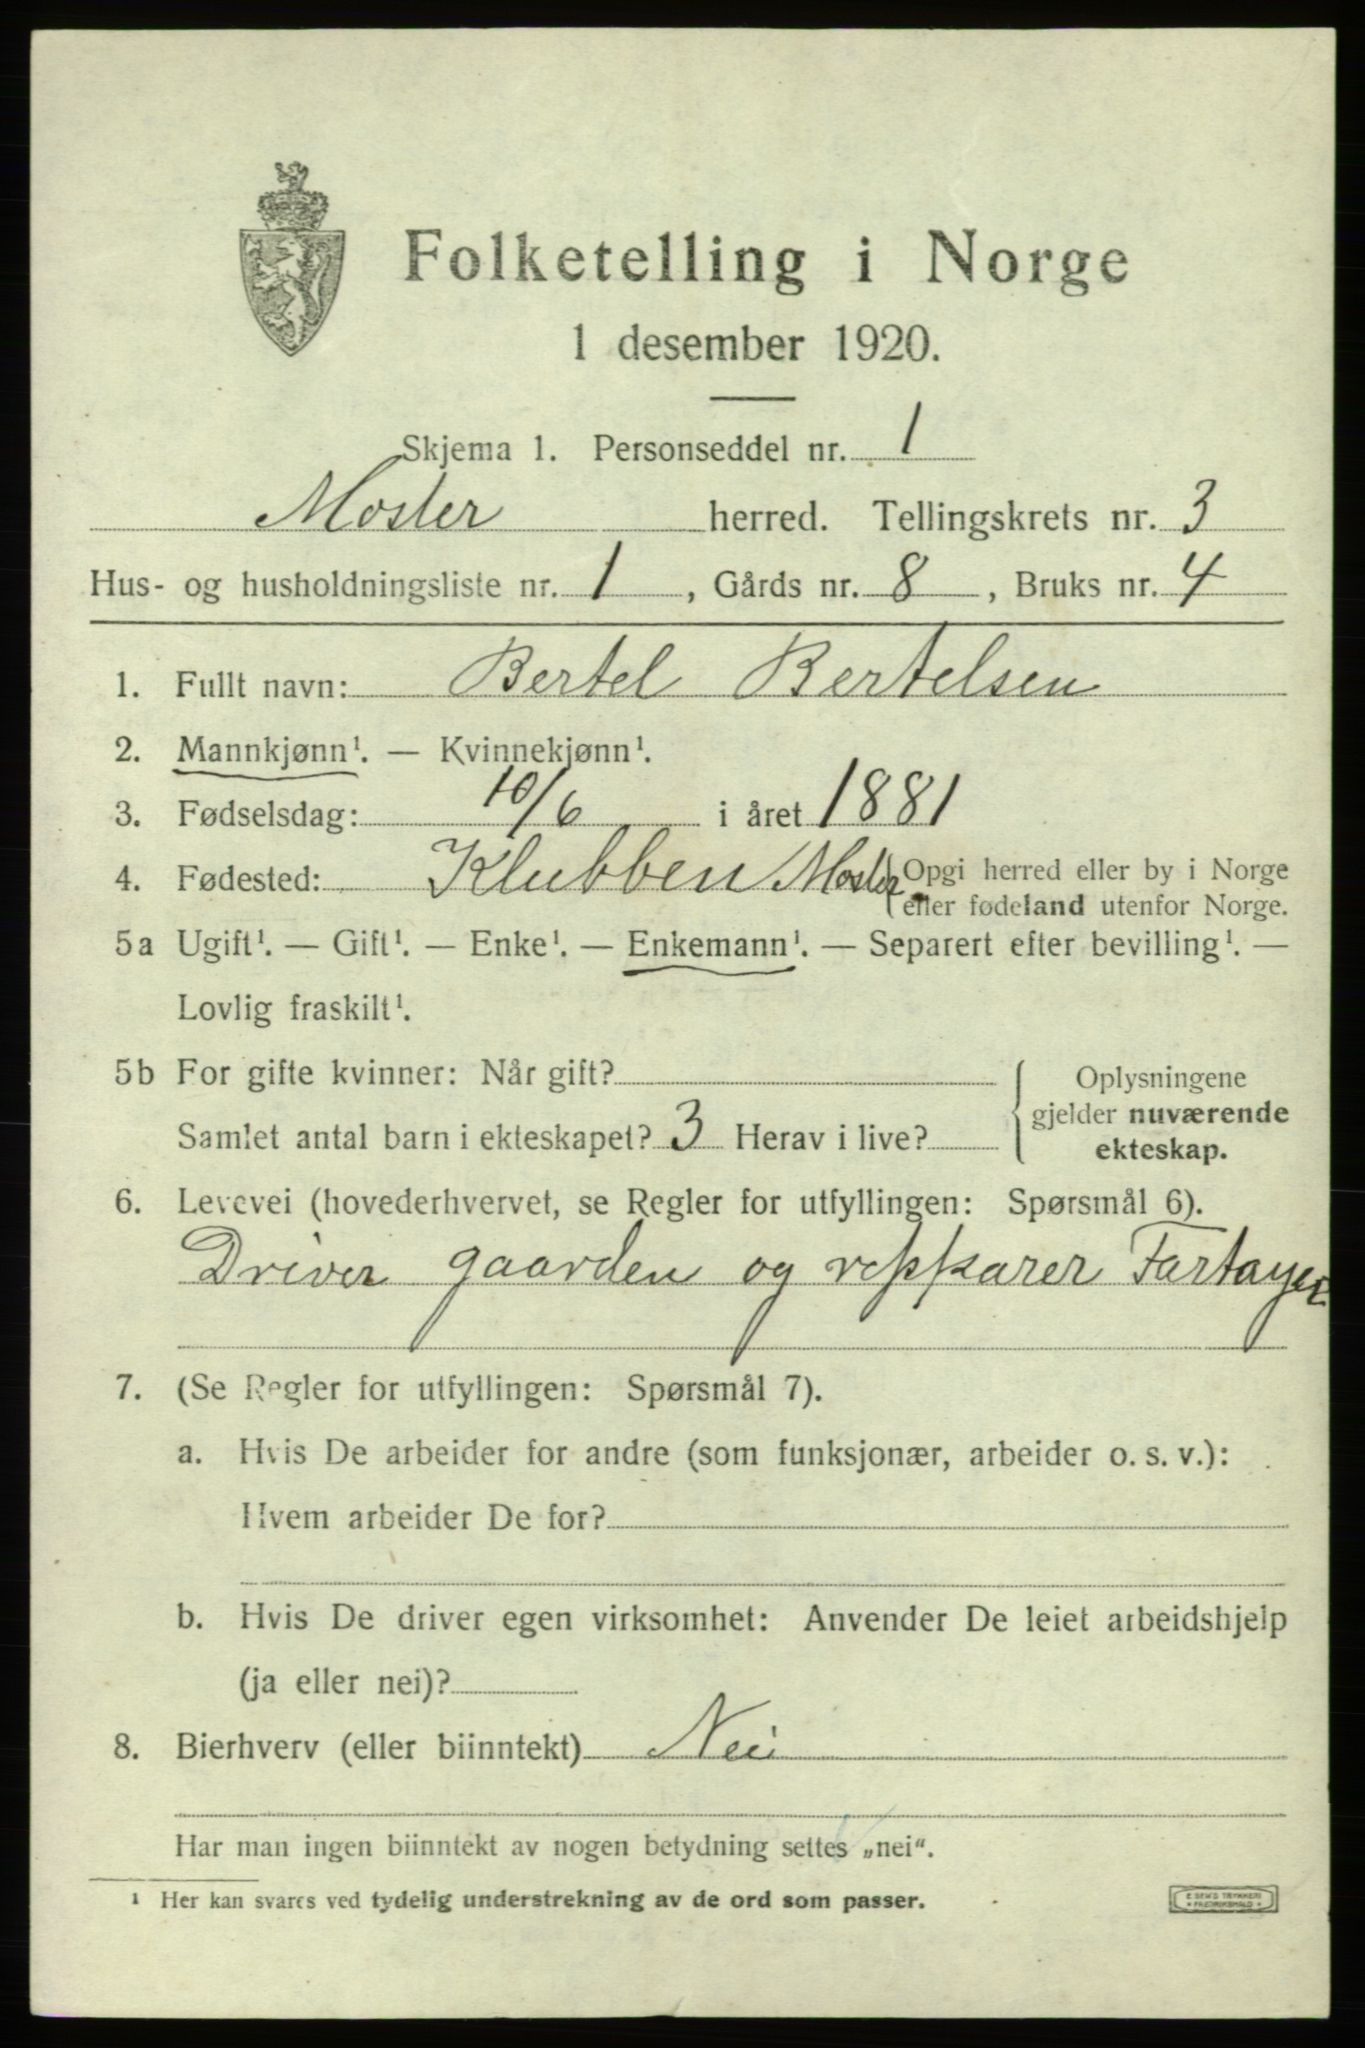 Folketelling i Norge
1 desember 1920.
Skjema 1. Personseddel nr. 1
Moster herred. Tellingskrets nr. 3
Hus- og husholdningsliste nr. 1, Gårds nr. 8, Bruks nr. 4
1. Fullt navn: Bertel Bertelsen
2. Mannkjønn¹. — Kvinnekjønn¹.
3. Fødselsdag: 10/6 i året 1881
4. Fødested: Klubben Moster
Opgi herred eller by i Norge
eller fødeland utenfor Norge.
5a Ugift¹. — Gift¹. — Enke¹. — Enkemann¹. — Separert efter bevilling¹. —
Lovlig fraskilt¹.
5b For gifte kvinner: Når gift?
Samlet antal barn i ekteskapet? 3 Herav i live?
Oplysningene
gjelder nuværende
ekteskap.
6. Levevei (hovederhvervet, se Regler for utfyllingen: Spørsmål 6).
Driver gaarden og repparer Fartøyer
7. (Se Regler for utfyllingen: Spørsmål 7).
a. Hvis De arbeider for andre (som funksjonær, arbeider o. s. v.):
Hvem arbeider De for?
b. Hvis De driver egen virksomhet: Anvender De leiet arbeidshjelp
(ja eller nei)?
8. Bierhverv (eller biinntekt) Nei
Har man ingen biinntekt av nogen betydning settes „nei“.
¹ Her kan svares ved tydelig understrekning av de ord som passer.
E SEM'S TRYKKERI
FREDRIKSHALD